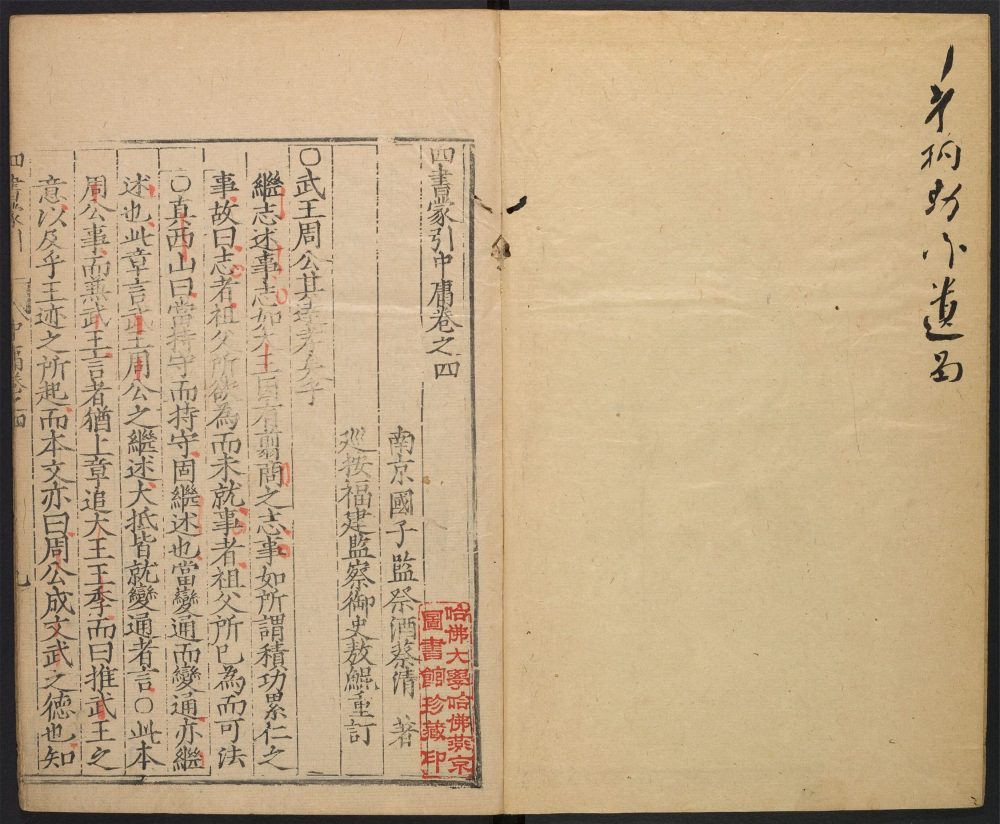 四書蒙引中庸卷之四
南京國子監祭酒蔡清 著
巡按福建監察御史敖鯤重訂
哈佛大學哈佛燕京
圖書館珍藏印
〇武王周公其達孝矣乎
繼志述事志如大王固有翦商之志事如所謂積功累仁之
事故曰志者祖父所欲為而未就事者祖父所已為而可法
〇真西山曰當持守而持守固繼述也當變通而變通亦繼
述也此章言武王周公之繼述大抵皆就變通者言〇此本
周公事而兼武王言者猶上章追大王王季而曰推武王之
意以及乎王迹之所起而本文亦曰周公成文武之德也知
四書蒙引
中庸卷之四